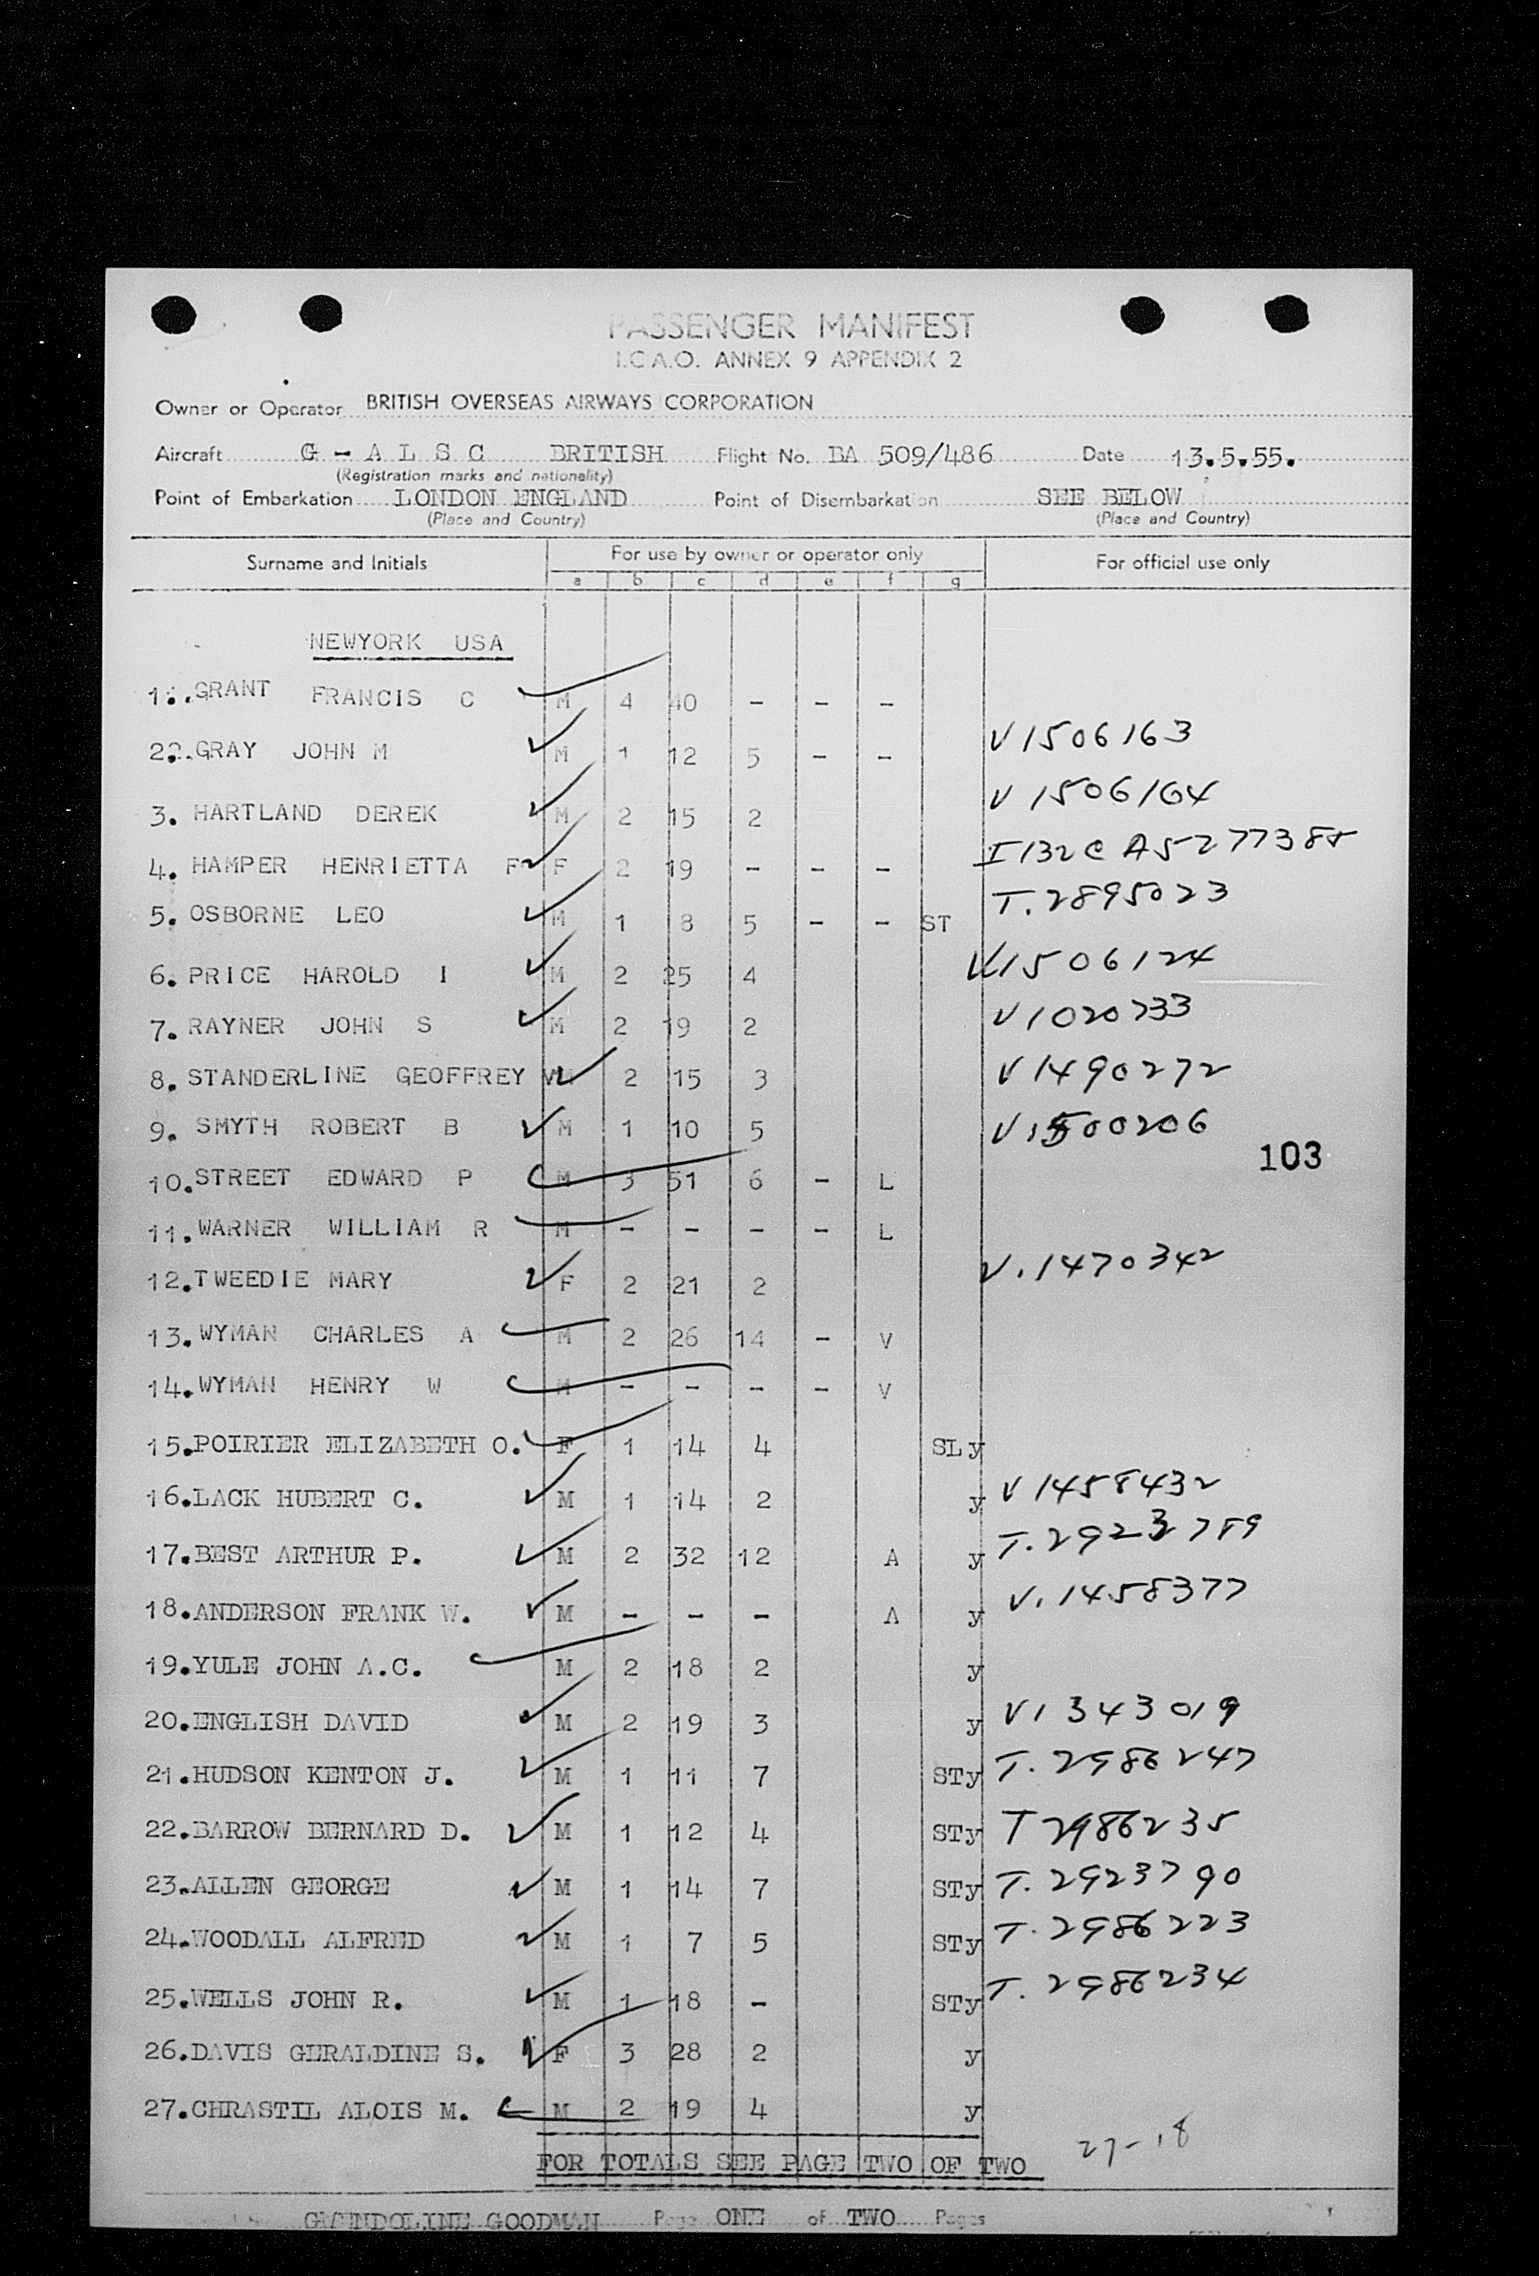 PASSENGER MANIFEST
I.C.A.O. ANNEX 9 APPENDIX 2
Owner or Operator BRITISH OVERSEAS AIRWAYS CORPORATION
Aircraft G - A L S C BRITISH Flight No. BA 509/486 Date 13.5.55.
(Registration marks and nationality)
Point of Embarkation LONDON ENGLAND Point of Disembarkation SEE BELOW
(Place and Country) (Place and Country)
Surname and Initials For use by owner or operator only For official use only
a b c d e f g
NEWYORK USA
1..GRANT FRANCIS C M 4 40 - - -
2..GRAY JOHN M M 1 12 5 - - V1506163
3. HARTLAND DEREK M 2 15 2 V 1506164
4. HAMPER HENRIETTA F F 2 19 - - - I132C A5277388
5. OSBORNE LEO M 1 8 5 - - ST T.2895023
6. PRICE HAROLD I M 2 25 4 V1506124
7. RAYNER JOHN S M 2 19 2 V1020733
8. STANDERLINE GEOFFREY 2 15 3 V1490272
9. SMYTH ROBERT B M 1 10 5 V1500206
103
10.STREET EDWARD P M 3 51 6 - L
11.WARNER WILLIAM R M - - - - L
12.TWEEDIE MARY F 2 21 2 V.1470342
13.WYMAN CHARLES A M 2 26 14 - V
14.WYMAN HENRY W M - - - - V
15.POIRIER ELIZABETH O. F 1 14 4 SLy
16.LACK HUBERT C. M 1 14 2 y V1458432
17.BEST ARTHUR P. M 2 32 12 A y T.2923789
18.ANDERSON FRANK W. M - - - A y V.1458377
19.YULE JOHN A.C. M 2 18 2 y
20.ENGLISH DAVID M 2 19 3 y V1343019
21.HUDSON KENTON J. M 1 11 7 STy T.2986247
22.BARROW BERNARD D. M 1 12 4 STy T2986235
23.ALLEN GEORGE M 1 14 7 STy T.2923790
24.WOODALL ALFRED M 1 7 5 STy T.2986223
25.WELLS JOHN R. M 1 18 - STy T.2986234
26.DAVIS GERALDINE S. F 3 28 2 y
27.CHRASTIL ALOIS M. M 2 19 4 y
FOR TOTALS SEE PAGE TWO OF TWO 27-18
GWENDOLINE GOODMAN Page ONE of TWO Pages